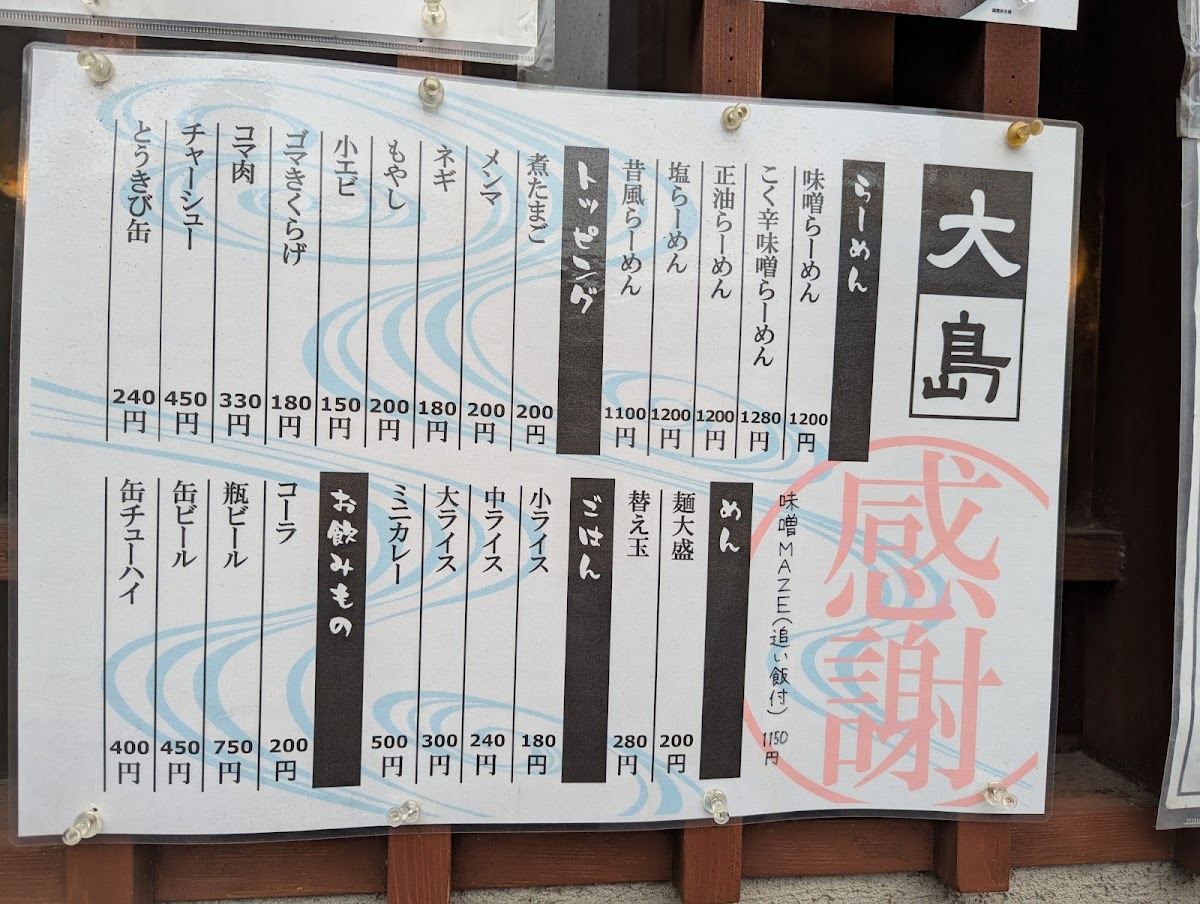 大島
感謝
らーめん
味噌らーめん 1200円
こく辛味噌らーめん 1280円
正油らーめん 1200円
塩らーめん 1200円
昔風らーめん 1100円
トッピング
煮たまご 200円
メンマ 200円
ネギ 180円
もやし 200円
小エビ 150円
ゴマきくらげ 180円
コマ肉 330円
チャーシュー 450円
とうきび缶 240円
味噌MAZE(追い飯付) 1150円
めん
麺大盛 200円
替え玉 280円
ごはん
小ライス 180円
中ライス 240円
大ライス 300円
ミニカレー 500円
お飲みもの
コーラ 200円
瓶ビール 750円
缶ビール 450円
缶チューハイ 400円